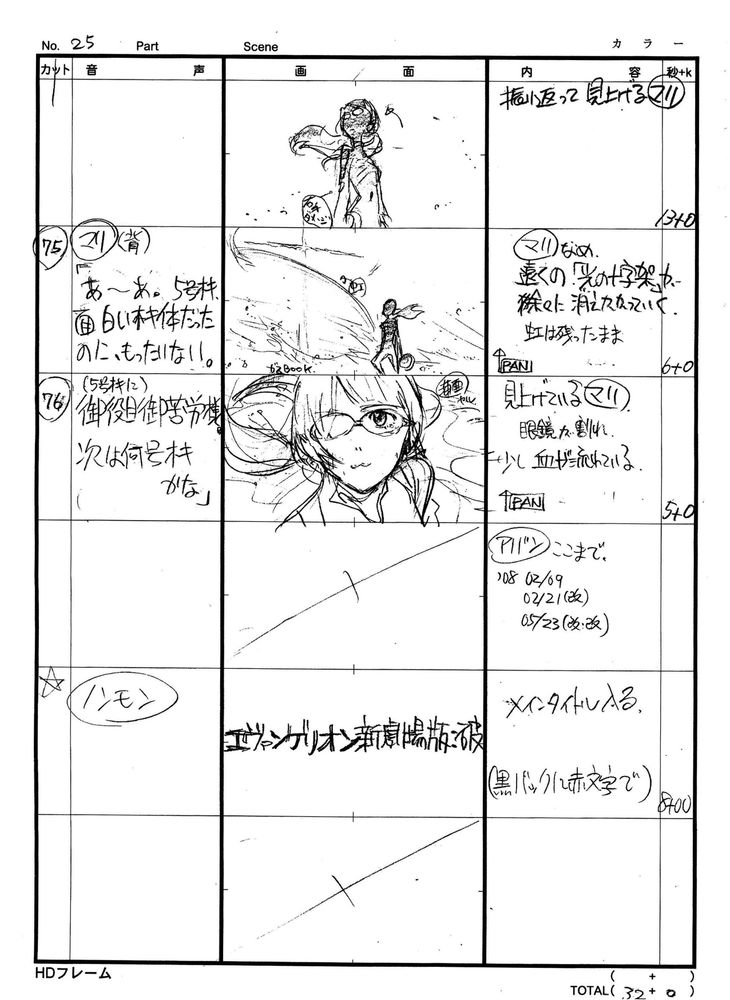 No. 25 Part Scene カラー
カット 音声 画面 内容 秒+k
振り返って見上げるマリ
13+0
75
マリ(背)
「あ〜あ。5号機、
面白い機体だった
のに、もったいない。
マリなめ、
遠くの「光の十字架」が、
徐々に消えなくなっていく。
虹は残ったまま
PAN
6+0
BOOK
76
(5号機に)
御役目御苦労様。
次は何号機
かな」
見上げているマリ。
眼鏡が割れ、
少し血が流れている。
PAN
5+0
アバンここまで。
'08 02/09
02/21(改)
05/23(改・改)
☆
ノンモン
エヴァンゲリオン新劇場版:破
メインタイトル入る。
(黒バックに赤文字で)
8+00
HDフレーム
( + )
TOTAL( 32 + 0 )